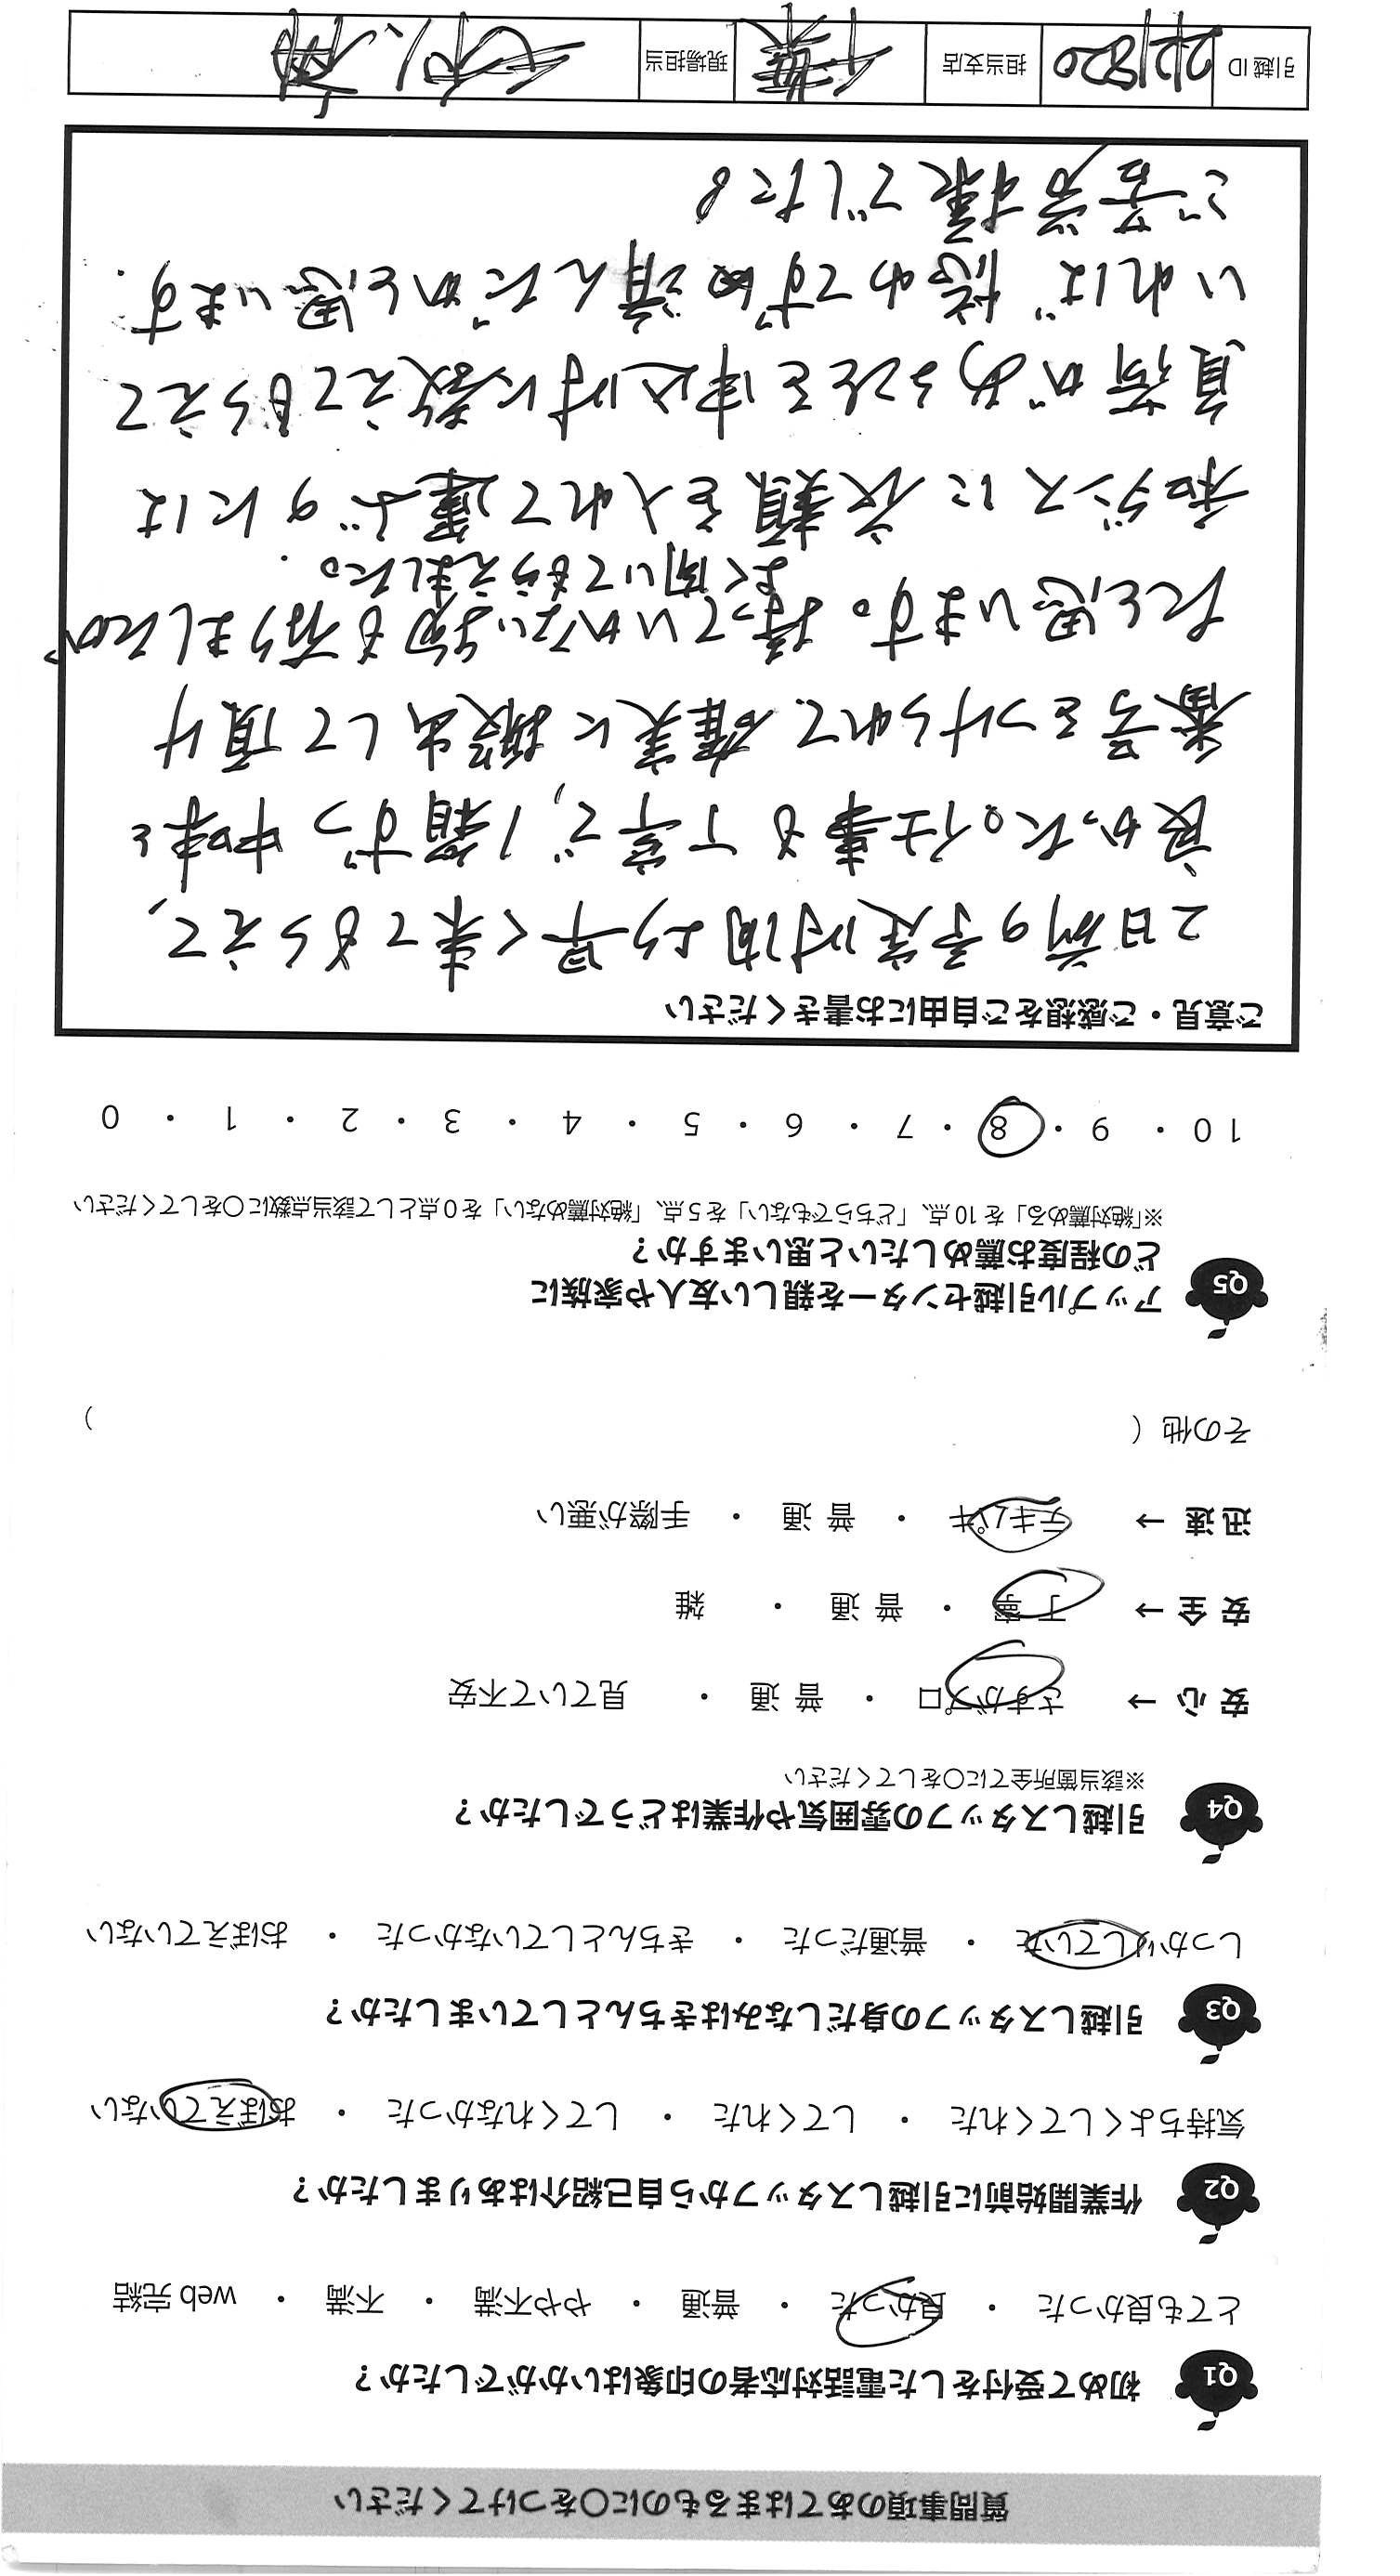 質問事項のあてはまるものに〇をつけてください
Q1 初めて受付をした電話対応者の印象はいかがでしたか？
とても良かった ・ 良かった ・ 普通 ・ やや不満 ・ 不満 ・ web 完結
Q2 作業開始前に引越しスタッフから自己紹介はありましたか？
気持ちよくしてくれた ・ してくれた ・ してくれなかった ・ おぼえていない
Q3 引越しスタッフの身だしなみはきちんとしていましたか？
しっかりしていた ・ 普通だった ・ きちんとしていなかった ・ おぼえていない
Q4 引越しスタッフの雰囲気や作業はどうでしたか？
※該当箇所全てに〇をしてください
安 心 → さすがプロ ・ 普 通 ・ 見ていて不安
安 全 → 丁 寧 ・ 普 通 ・ 雑
迅 速 → テキパキ ・ 普 通 ・ 手際が悪い
その他（ ）
Q5 アップル引越センターを親しい友人や家族に
どの程度お薦めしたいと思いますか？
※「絶対薦める」を 10 点、「どちらでもない」を 5 点、「絶対薦めない」を 0 点として該当点数に〇をしてください
10 ・ 9 ・ 8 ・ 7 ・ 6 ・ 5 ・ 4 ・ 3 ・ 2 ・ 1 ・ 0
ご意見・ご感想をご自由にお書きください
2日前の予定時間より早く来てもらえて、
良かった。仕事も丁寧で、1箱ずつ中味と
番号をつけられて、確実に搬出して頂け
たと思います。持っていかない物も有りましたが
よく聞いてもらえました。
和ダンスに衣類を入れて運ぶのには
負荷があることを申込時に教えてもらえて
いれば 慌わてずに済んだかと思います.
ご苦労様でした。
引越 ID 2121820 担当支店 千葉 現場担当